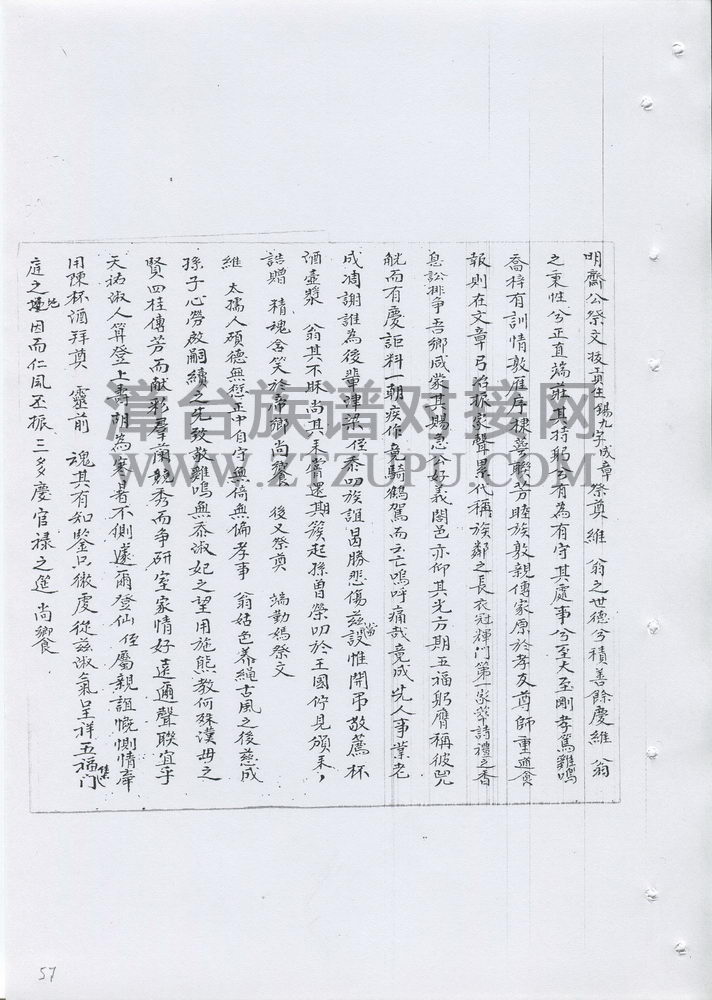 明齋公祭文 技工貢生錫九字成章祭奠 維 翁之世德兮積善餘慶維 翁
之秉性兮正直端莊其持躬兮有為有守其處事兮至大至剛孝篤雞鳴
喬梓有訓情敦雁序棣萼聯芳睦族敦親傳家原於孝友尊師重道食
報則在文章弓冶振家聲累代稱族鄰之長衣冠輝門第一家萃詩禮之香
息訟排爭吾鄉咸蒙其賜急公好義閤邑亦仰其光方期五福躬膺稱彼兕
觥而有慶詎料一朝疾作竟騎鶴駕而云亡嗚呼痛哉竟成先人事業老
成凋謝誰為後輩津梁侄忝叨族誼曷勝悲傷茲當設帷開弔敬薦杯
酒壺漿 翁其不昧尚其來嘗還期簇起孫曾榮叨於王國佇見頒來，
誥贈 精魂含笑於帝鄉尚饗 後又祭奠 端勤媽祭文
維 太孺人碩德無愆正中自守無倚無偏孝事 翁姑色養繩古風之後慈成
孫子心勞啟嗣續之先致敬雞鳴無忝淑妃之望用施熊教何殊漢母之
賢四桂傳芳而献彩羣蘭競秀而争研室家情好遠邇聲聯宜乎
天祐淑人算登上壽胡為寒暑不侧遽爾登仙侄屬親誼慨惻情牽
用陳杯酒拜奠 靈前 魂其有知鑒只微虔從茲淑氣呈祥五福集門
庭之地因而仁風丕振三多慶官禄之遷 尚饗
漳台族谱对接网
WWW.ZTZUPU.COM
57